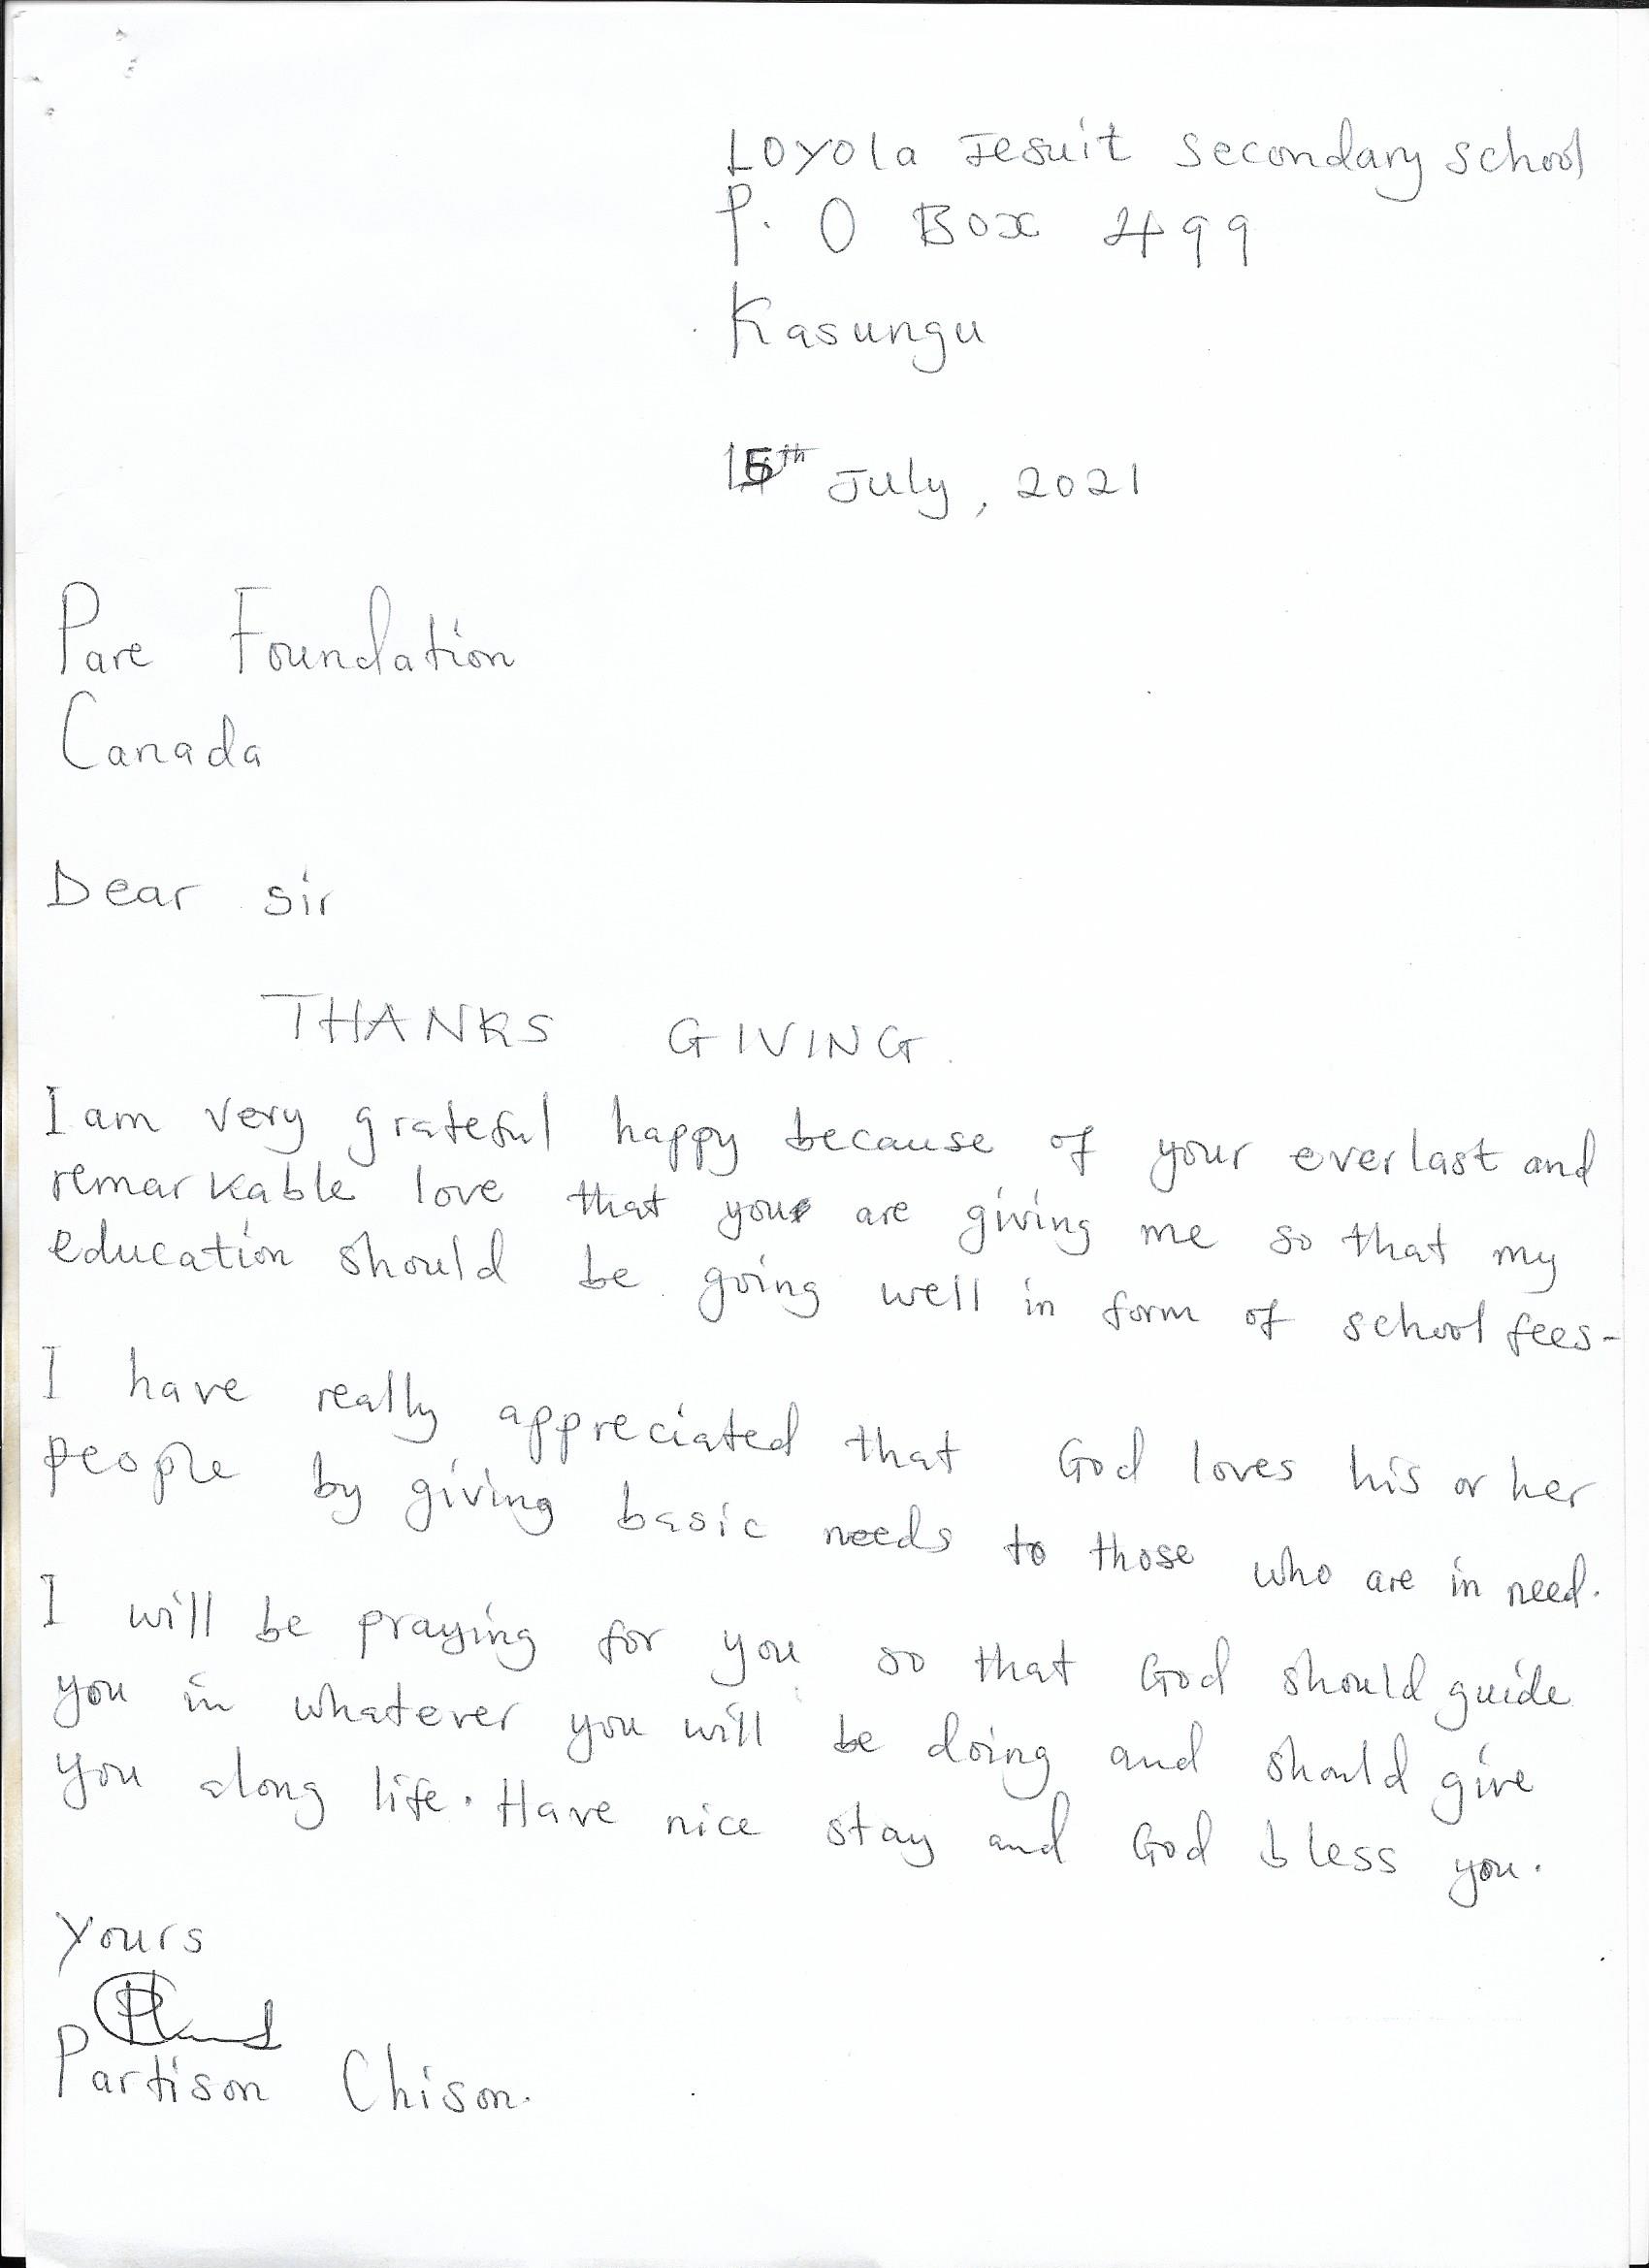 Loyola Jesuit Secondary School
P. O Box 499
Kasungu
15th July, 2021
Pare Foundation
Canada
Dear Sir
THANKS GIVING.
I am very grateful happy because of your everlast and
remarkable love that you are giving me so that my
education should be going well in form of school fees-
I have really appreciated that God loves his or her
people by giving basic needs to those who are in need.
I will be praying for you so that God should guide
you in whatever you will be doing and should give
you along life. Have nice stay and God bless you.
Yours
Partison Chison.